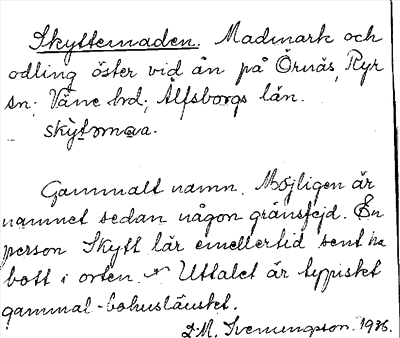 Skyttemaden. Madmark och
odling öster vid ån på Örnäs, Ryr
sn; Väne hd; Älfsborgs län.
skỳtəmɑa.
Gammalt namn. Möjligen är
namnet sedan någon gränsfejd. En
person Skytt lär emellertid sent ha
bott i orten. Uttalet är typiskt
gammal-bohuslänskt.
D.M. Svenungsson. 1936.